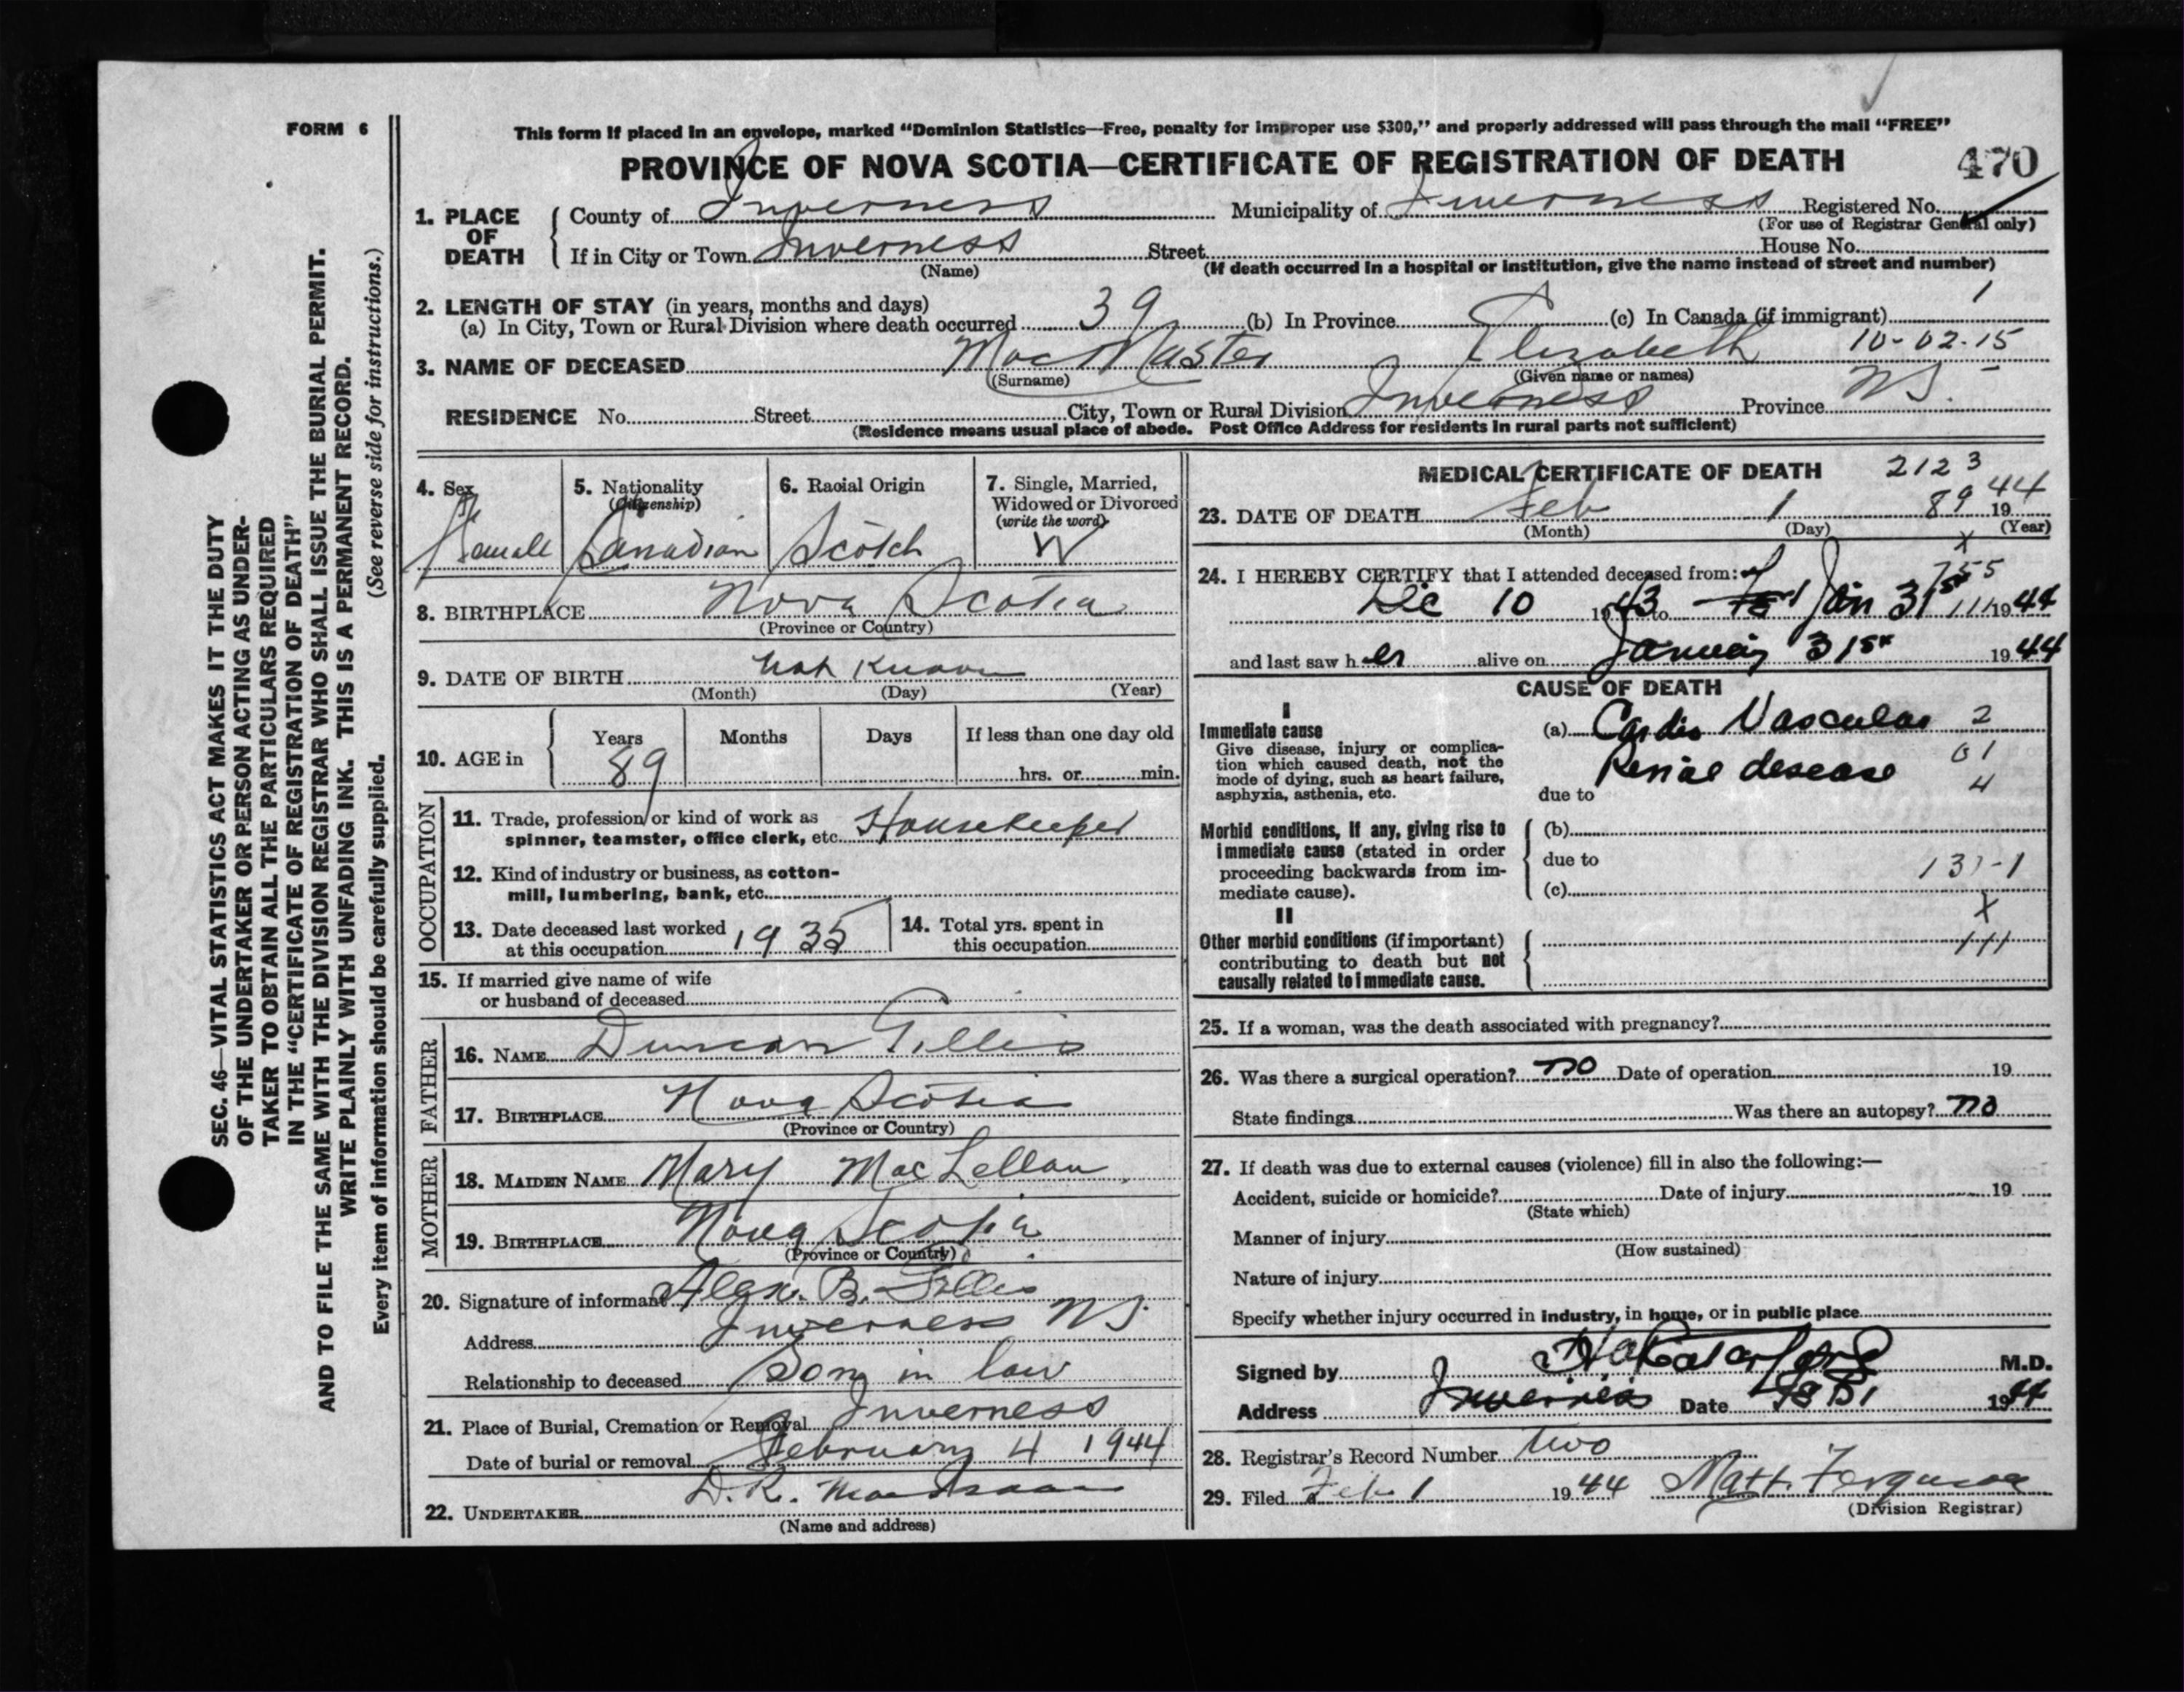 FORM 6
SEC. 46—VITAL STATISTICS ACT MAKES IT THE DUTY
OF THE UNDERTAKER OR PERSON ACTING AS UNDER-
TAKER TO OBTAIN ALL THE PARTICULARS REQUIRED
IN THE "CERTIFICATE OF REGISTRATION OF DEATH"
AND TO FILE THE SAME WITH THE DIVISION REGISTRAR WHO SHALL ISSUE THE BURIAL PERMIT.
WRITE PLAINLY WITH UNFADING INK. THIS IS A PERMANENT RECORD.
Every item of information should be carefully supplied. (See reverse side for instructions.)
This form if placed in an envelope, marked "Dominion Statistics—Free, penalty for improper use $300," and properly addressed will pass through the mail "FREE"
PROVINCE OF NOVA SCOTIA—CERTIFICATE OF REGISTRATION OF DEATH 470
1. PLACE OF DEATH
County of Inverness Municipality of Inverness Registered No.
(For use of Registrar General only)
If in City or Town Inverness Street House No.
(Name) (If death occurred in a hospital or institution, give the name instead of street and number)
2. LENGTH OF STAY (in years, months and days)
(a) In City, Town or Rural Division where death occurred 39 (b) In Province (c) In Canada (if immigrant) 1
10-02-15
3. NAME OF DECEASED MacMaster Elizabeth
(Surname) (Given name or names)
RESIDENCE No. Street City, Town or Rural Division Inverness Province N.S.
(Residence means usual place of abode. Post Office Address for residents in rural parts not sufficient)
4. Sex Female
5. Nationality (Citizenship) Canadian
6. Racial Origin Scotch
7. Single, Married, Widowed or Divorced (write the word) W
8. BIRTHPLACE Nova Scotia
(Province or Country)
9. DATE OF BIRTH Not Known
(Month) (Day) (Year)
10. AGE in Years 89 Months Days If less than one day old
hrs. or min.
OCCUPATION
11. Trade, profession or kind of work as spinner, teamster, office clerk, etc. Housekeeper
12. Kind of industry or business, as cotton-mill, lumbering, bank, etc.
13. Date deceased last worked at this occupation 1935
14. Total yrs. spent in this occupation
15. If married give name of wife or husband of deceased
FATHER
16. NAME Duncan Gillis
17. BIRTHPLACE Nova Scotia
(Province or Country)
MOTHER
18. MAIDEN NAME Mary MacLellan
19. BIRTHPLACE Nova Scotia
(Province or Country)
20. Signature of informant Alex. B. Gillis
Address Inverness NS
Relationship to deceased Son in law
21. Place of Burial, Cremation or Removal Inverness
Date of burial or removal February 4 1944
22. UNDERTAKER D.R. MacIsaac
(Name and address)
MEDICAL CERTIFICATE OF DEATH 2123
89
23. DATE OF DEATH Feb 1 1944
(Month) (Day) (Year)
X
24. I HEREBY CERTIFY that I attended deceased from:
755
Dec 10 1943 to Jan 31st 1944
111
and last saw her alive on January 31st 1944
CAUSE OF DEATH
I
Immediate cause
Give disease, injury or complica-
tion which caused death, not the
mode of dying, such as heart failure,
asphyxia, asthenia, etc.
(a) Cardio Vascular 2
Renal desease 01
due to 4
Morbid conditions, if any, giving rise to
immediate cause (stated in order
proceeding backwards from im-
mediate cause).
(b)
due to
(c)
X
II
Other morbid conditions (if important)
contributing to death but not
causally related to immediate cause.
111
25. If a woman, was the death associated with pregnancy?
26. Was there a surgical operation? no Date of operation 19
State findings Was there an autopsy? no
27. If death was due to external causes (violence) fill in also the following:—
Accident, suicide or homicide? Date of injury 19
(State which)
Manner of injury
(How sustained)
Nature of injury
Specify whether injury occurred in industry, in home, or in public place
Signed by M.D.
Address Inverness Date Feb 1 1944
28. Registrar's Record Number two
29. Filed Feb 1 1944 Matt. Ferguson
(Division Registrar)